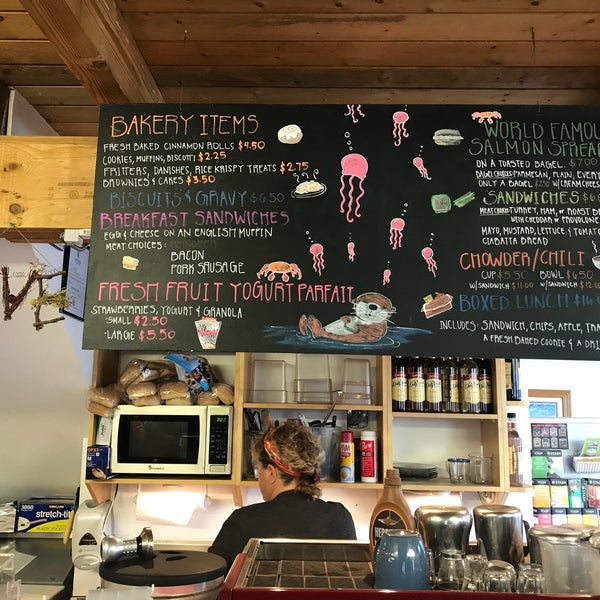 BAKERY ITEMS
FRESH BAKED CINNAMON ROLLS $4.50
COOKIES, MUFFINS, BISCOTTI $2.25
FRITTERS, DANISHES, RICE KRISPY TREATS $2.75
BROWNIES & CAKES $3.50
BISCUITS & GRAVY $6.50
BREAKFAST SANDWICHES
EGG & CHEESE ON AN ENGLISH MUFFIN
MEAT CHOICES:
BACON
PORK SAUSAGE
FRESH FRUIT YOGURT PARFAIT
STRAWBERRIES, YOGURT & GRANOLA
-SMALL $2.50
-LARGE $5.50
WORLD FAMOU
SALMON SPREA
ON A TOASTED BAGEL. $7.00
BAGEL CHOICES: PARMESAN, PLAIN, EVERY
ONLY A BAGEL $2.50 W/ CREAM CHEES
SANDWICHES $6.
MEAT CHOICES: TURKEY, HAM, OR ROAST B
WITH CHEDDAR OR PROVOLONE
MAYO, MUSTARD, LETTUCE & TOMATO
CIABATTA BREAD
CHOWDER/CHILI
CUP $5.50 BOWL $6.50
W/ SANDWICH $11.00 W/ SANDWICH $12.00
BOXED LUNCH $16.
INCLUDES: SANDWICH, CHIPS, APPLE, TRA
A FRESH BAKED COOKIE & A DRI
3000
stretch-tit